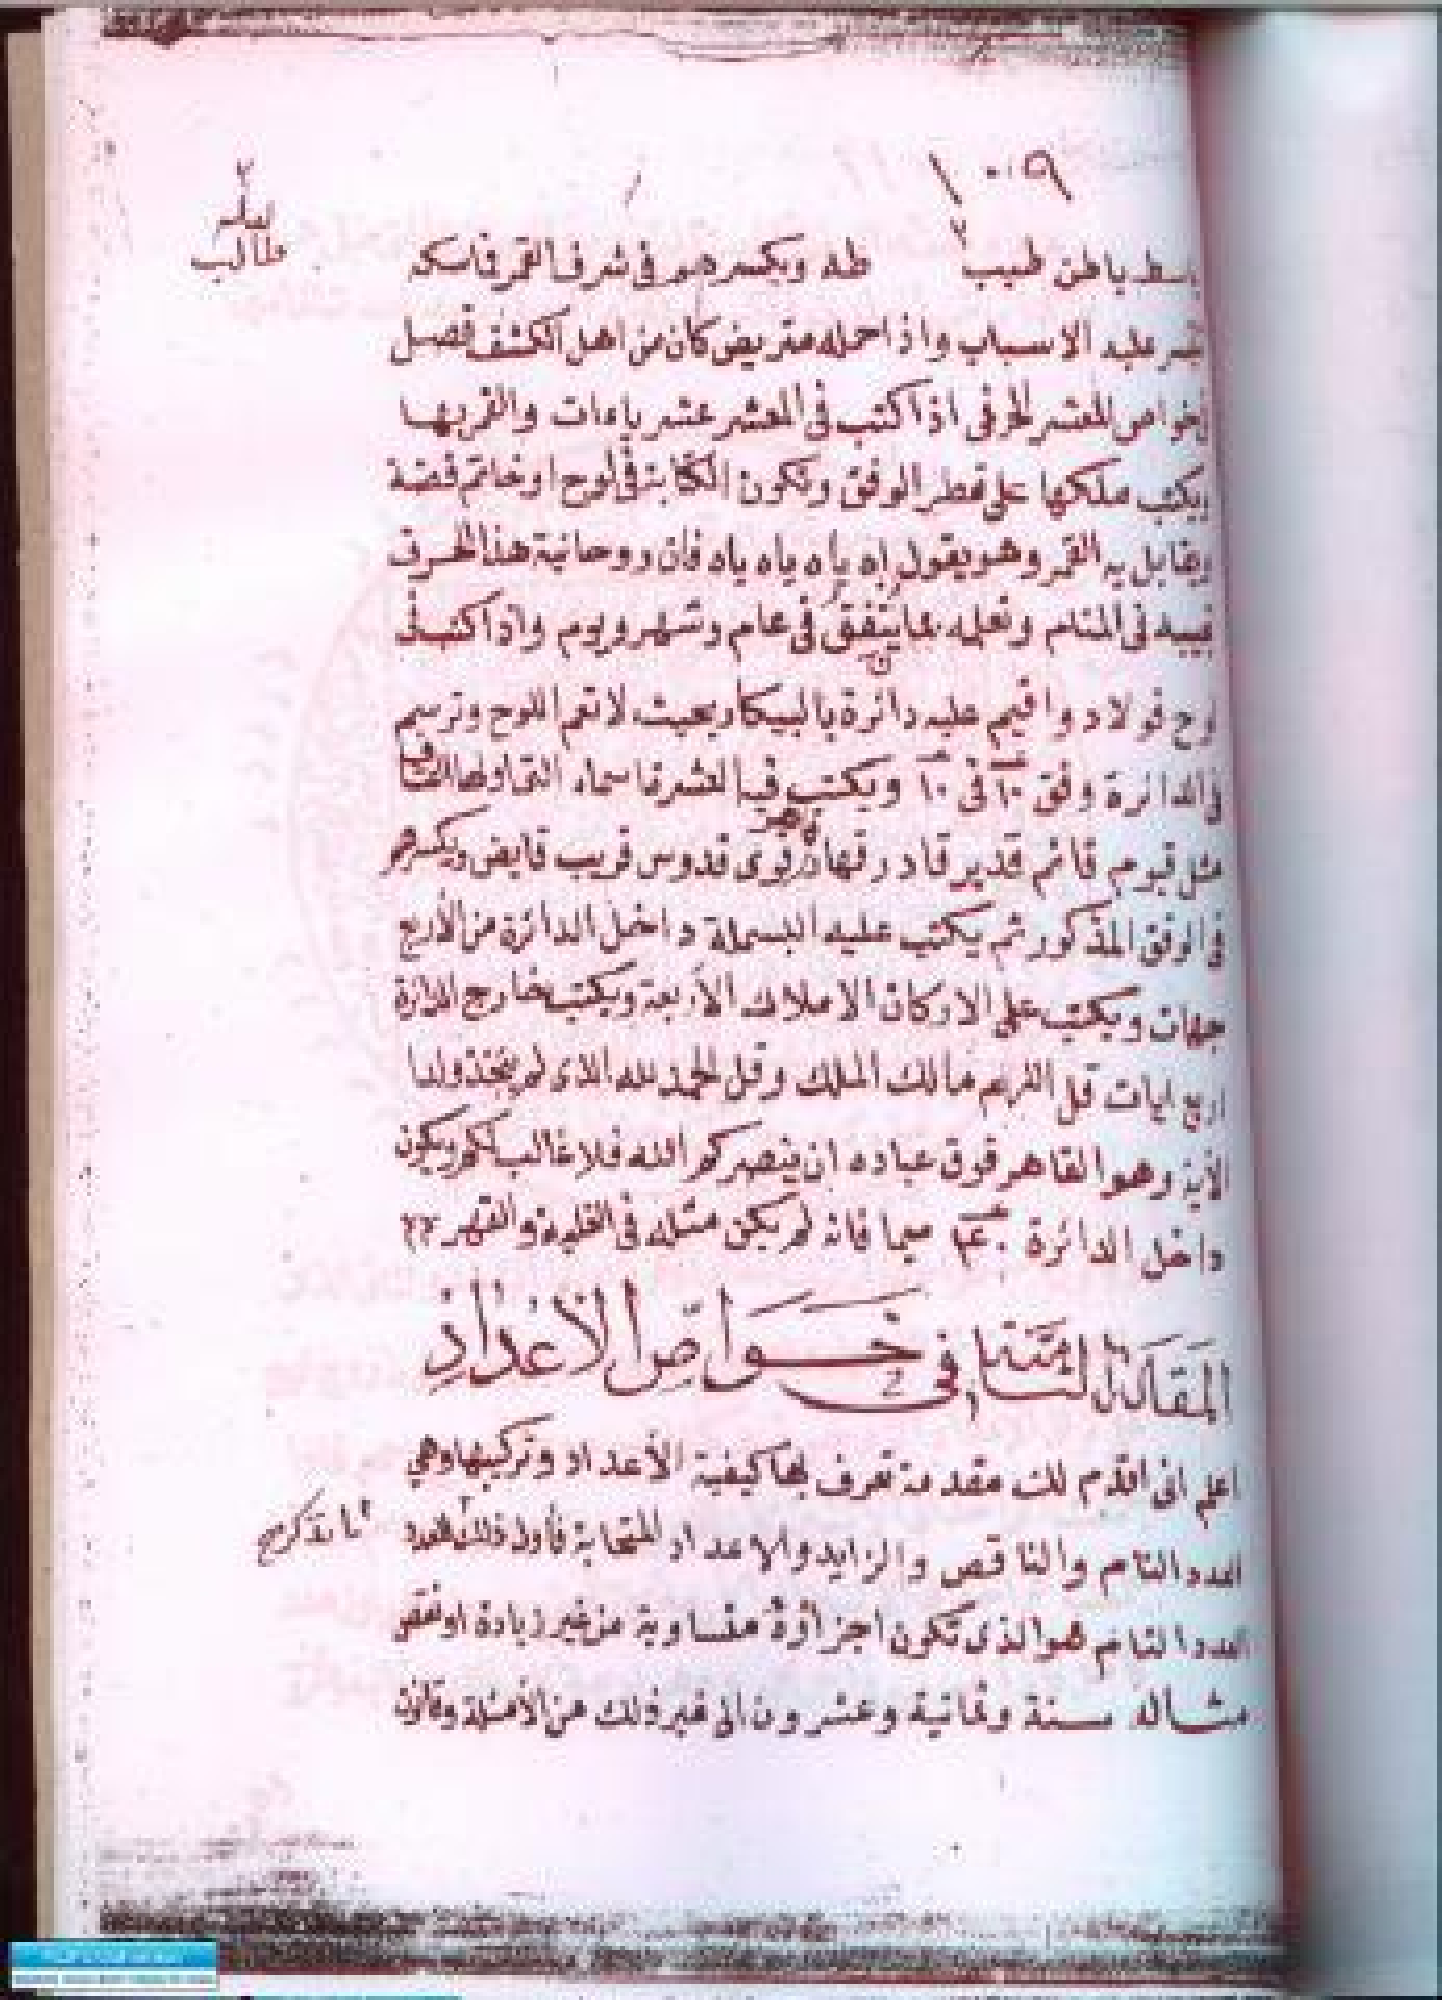 ١٠٩
٢
لعله
طالب
باسط باطن طبيب طه ويكسرهم في شرف القمر فماسكه
عليه الاسباب واذا حمله متريض كان من اهل الكشف فصل
خواص المعشر الحرفى اذا كتب فى المعشر عشر ياءات والقمر بها
ويكتب ملكها على قطر الوفق وتكون الكتابة فى لوح او خاتم فضة
ويقابل به القمر وهو يقول ياه ياه ياه ياه فان روحانية هذا الحرف
فى المنام وتعلمه بما يتفق فى عام وشهر ويوم واذا كتب فى
لوح فولاد واقيم عليه دائرة بالبيكار بحيث لا تعم اللوح وترسم
فى الدائرة وفق ١٠ فى ١٠ ويكتب فى العشر اسماء التى اولها القاف
مثل قيوم قائم قدير قادر قهار قاهر قوى قدوس قريب قابض ويكسرهم
فى الوفق المذكور ثم يكتب عليه البسملة داخل الدائرة من الأربع
جهات ويكتب على الاركان الاملاك الأربعة ويكتب خارج الدائرة
اربع ايات قل اللهم مالك الملك وقل الحمد لله الذى لم يتخذ ولدا
الأية وهو القاهر فوق عباده ان ينصركم الله فلا غالب لكم ويكون
داخل الدائرة ٤٠ ميما فانه لم يكن مثله فى الغلبة والقهر
المقالة الثامنة فى خواص الأعداد
اعلم انى اقدم لك مقدمة تعرف بها كيفية الأعداد وتركيبها وهي
العدد التام والناقص والزايد والاعداد المتحابة فأول ذلك العدد
العدد التام هو الذى تكون اجزاؤه متساوية من غير زيادة او نقص
مثاله ستة وثمانية وعشرون الى غير ذلك من الأمثلة وقانون